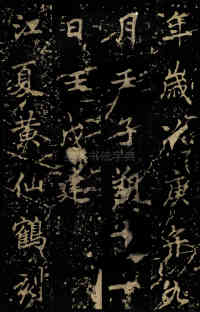 年歲次庚午九
月壬子朔十一
日壬戌建
江夏黃仙鶴刻